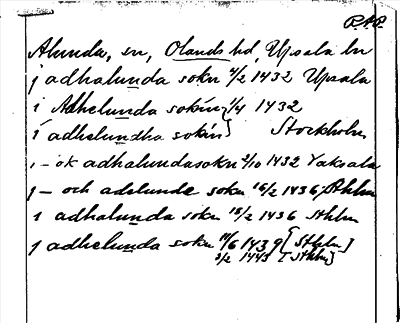 R.A.P.
Alunda, sn, Olands hd, Upsala ln
j adhalunda sokn 4/2 1432 Upsala
i Adhelunda sokn } 1/4 1432
i adhelundha sokn } Stockholm
i – ok adhalunda sokn 2/10 1432 Vaksala
j – och adelunde sokn 16/2 1436, Sthlm
i adhalunda sokn 18/2 1436 Sthlm
j adhelunda sokn 14/6 1439 [Sthlm]
3/2 1445 [Sthlm]